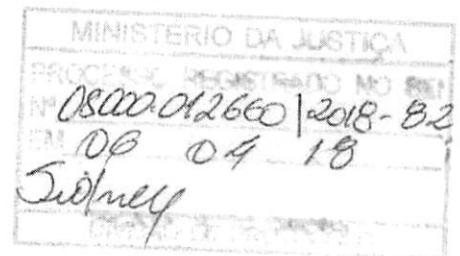 MINISTÉRIO DA JUSTIÇA
PROCESSO REGISTRADO NO SEI
Nº 08000.012660|2018-82
EM 06 04 18
Sidney